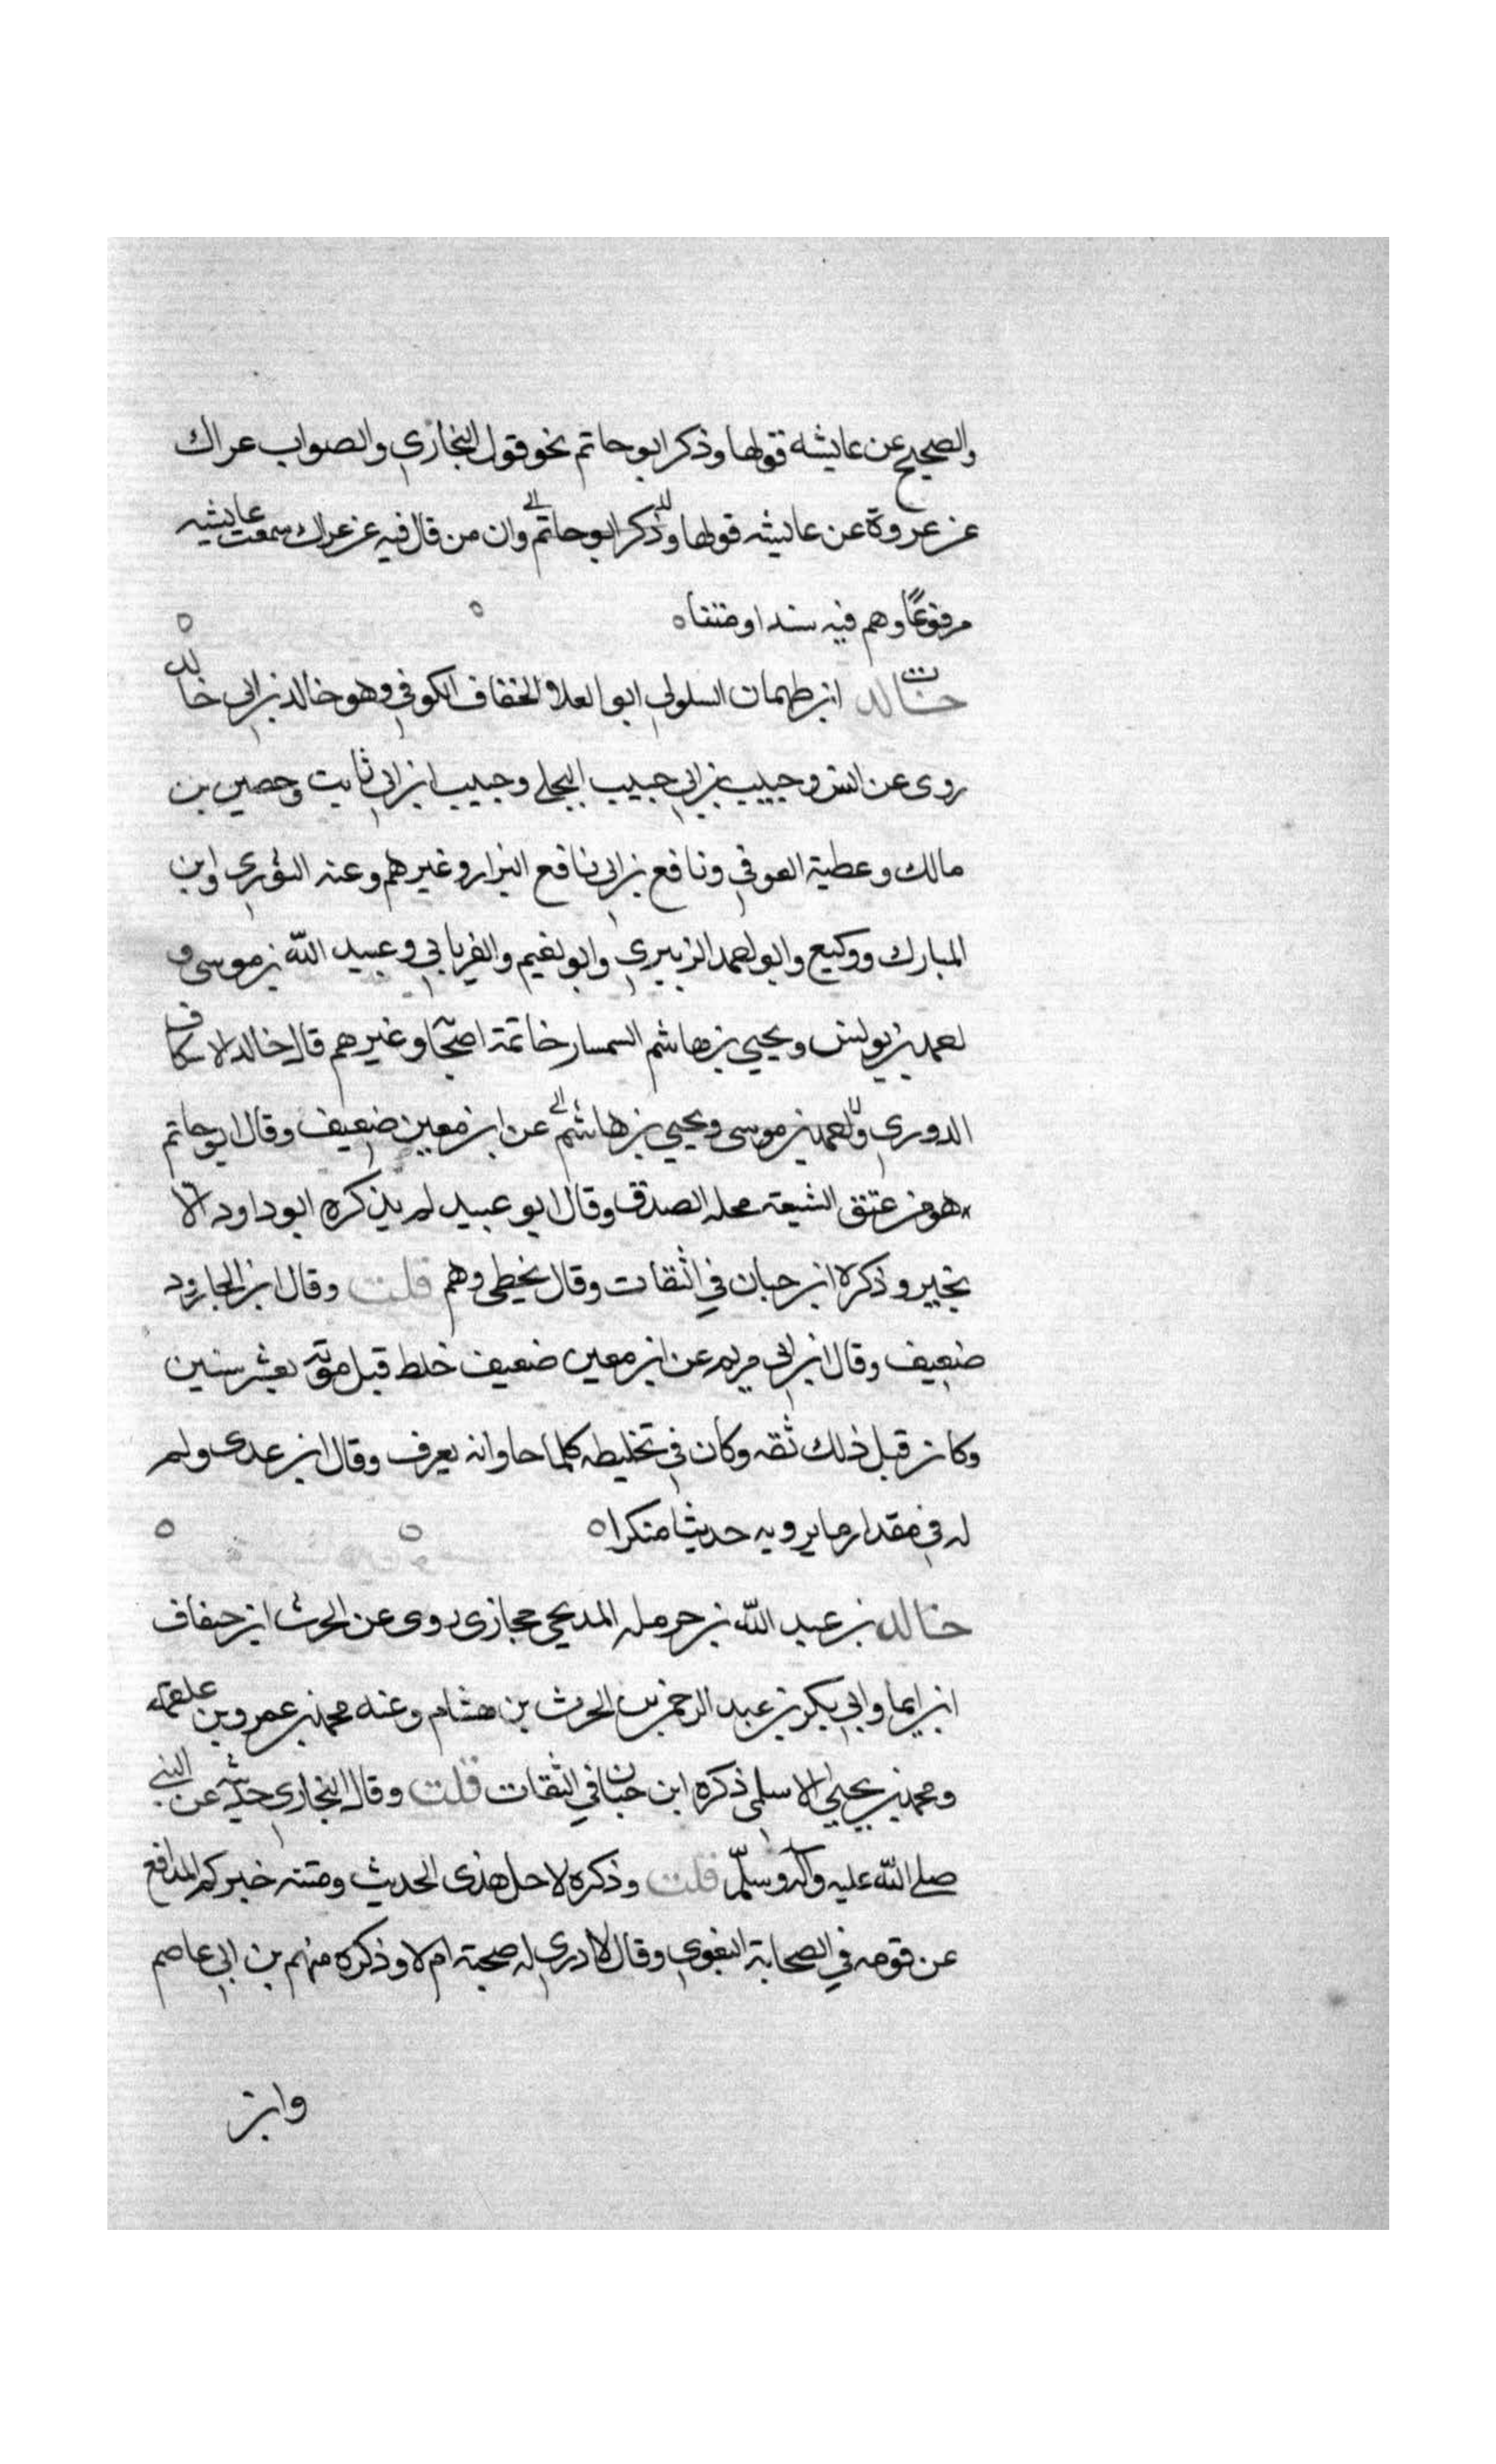 والصحيح عن عايشه قولها وذكر ابو حاتم نحو قول البخاري والصواب عراك
عن عروة عن عايشه قولها وذكر ابو حاتم وان من قال فيه عن عراك سمعت عايشه
مرفوعًا وهم فيه سندا ومتنا ٥
خالد ابن طهمان السلولي ابو العلا الخفاف الكوفي وهو خالد بن ابي خالد
روى عن انس وحبيب بن ابي حبيب البجلي وحبيب ابن ابي ثابت وحصين بن
مالك وعطية العوفي ونافع بن ابي نافع البزار وغيرهم وعنه الثوري وابن
المبارك ووكيع وابو احمد الزبيري وابو نعيم والفريابي وعبيد الله بن موسى و
احمد بن يونس ويحيي بن هاشم السمسار خاتمة اصحا وغيرهم قال خالد الاسكاف
الدوري واحمد بن موسى ويحيي بن هاشم عن ابن معين ضعيف وقال ابو حاتم
هو من عتق الشيعة محله الصدق وقال ابو عبيد لم يذكره ابو داود الا
بخير وذكره ابن حبان في الثقات وقال يخطي وهم قلت وقال ابن الجارود
ضعيف وقال ابن ابي مريم عن ابن معين ضعيف خلط قبل موته بعشر سنين
وكان قبل ذلك ثقه وكان في تخليطه كلما جاوانه يعرف وقال ابن عدى ولم
له في مقدار ما يرويه حديثا منكرا ٥
خالد بن عبد الله بن حرمله المدلجي حجازى روى عن الحرث ابن خفاف
ابن ايما وابي بكر بن عبد الرحمن بن الحرث بن هشام وعنه محمد بن عمرو بن علقمه
ومحمد بن يحيي الاسلمي ذكره ابن حبان في الثقات قلت وقال البخارى حديثه عن النبي
صلى الله عليه وآله وسلم قلت وذكره لاجل هذى الحديث ومتنه خيركم المدافع
عن قومه في الصحابة البغوي وقال لا ادري له صحبة ام لا وذكره منهم بن ابي عاصم
وابن